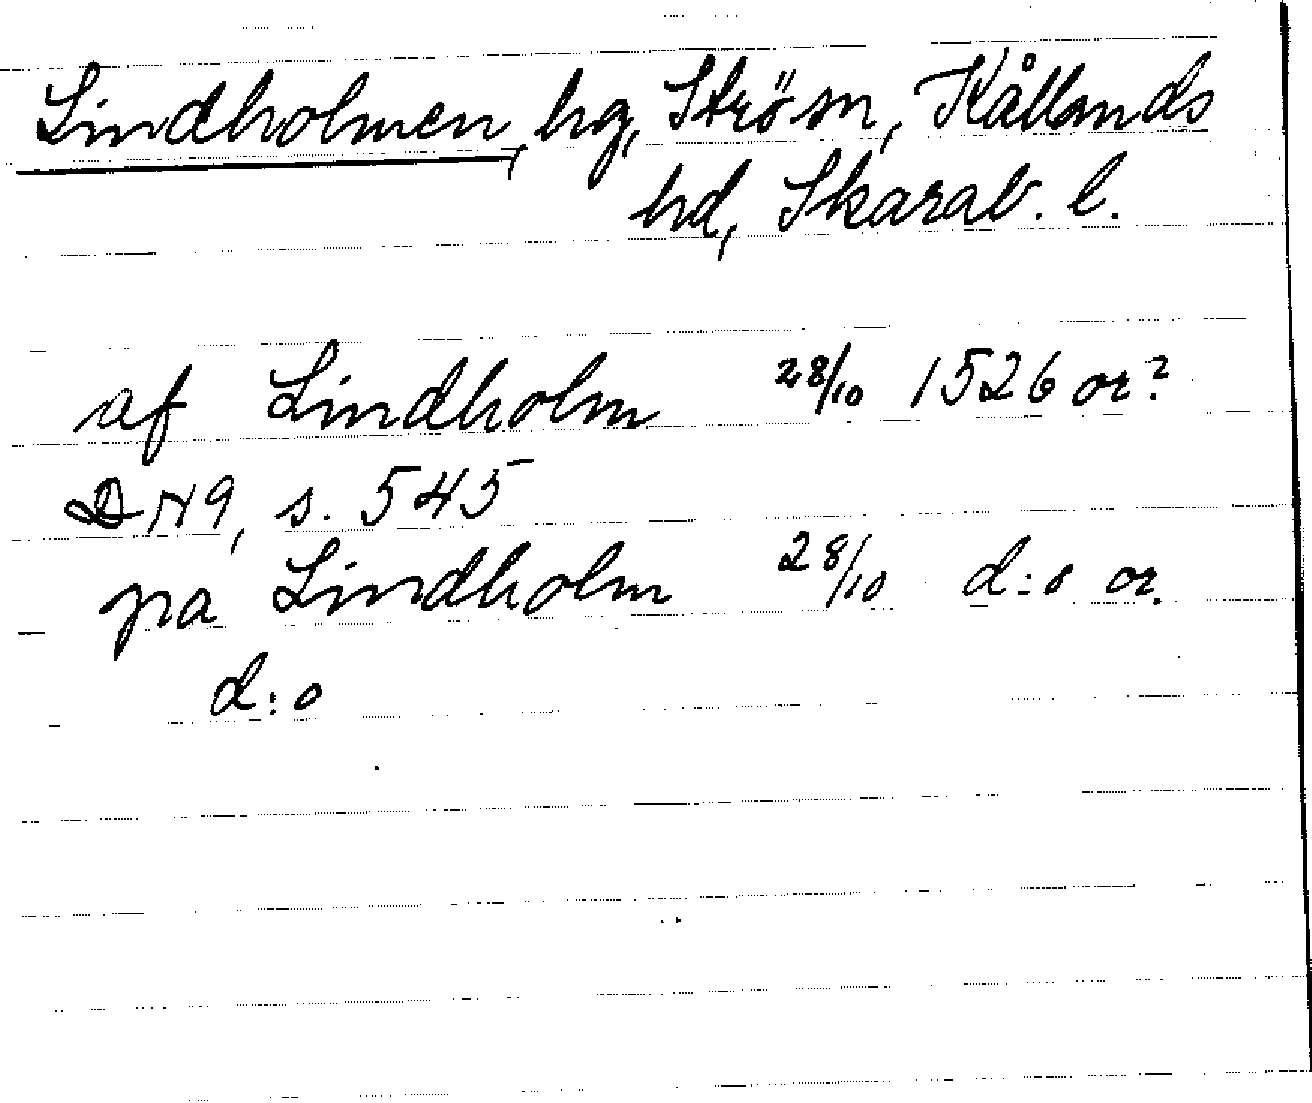 Lindholmen, hg, Ström, Kållands
hd, Skarab. l.
af Lindholm 28/10 1526 or?
DN9, s. 545
pa Lindholm 28/10 d:o or.
d:o